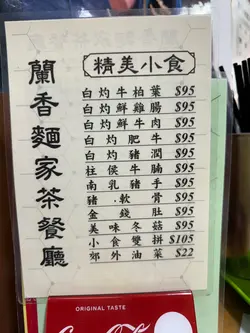 蘭香麵家茶餐廳
精美小食
白灼牛柏葉 $95
白灼鮮雞腸 $95
白灼鮮牛肉 $95
白灼肥牛 $95
白灼豬潤 $95
柱侯牛腩 $95
南乳豬手 $95
豬.軟骨 $95
金錢肚 $95
美味冬菇 $95
小食雙拼 $105
郊外油菜 $22
ORIGINAL TASTE